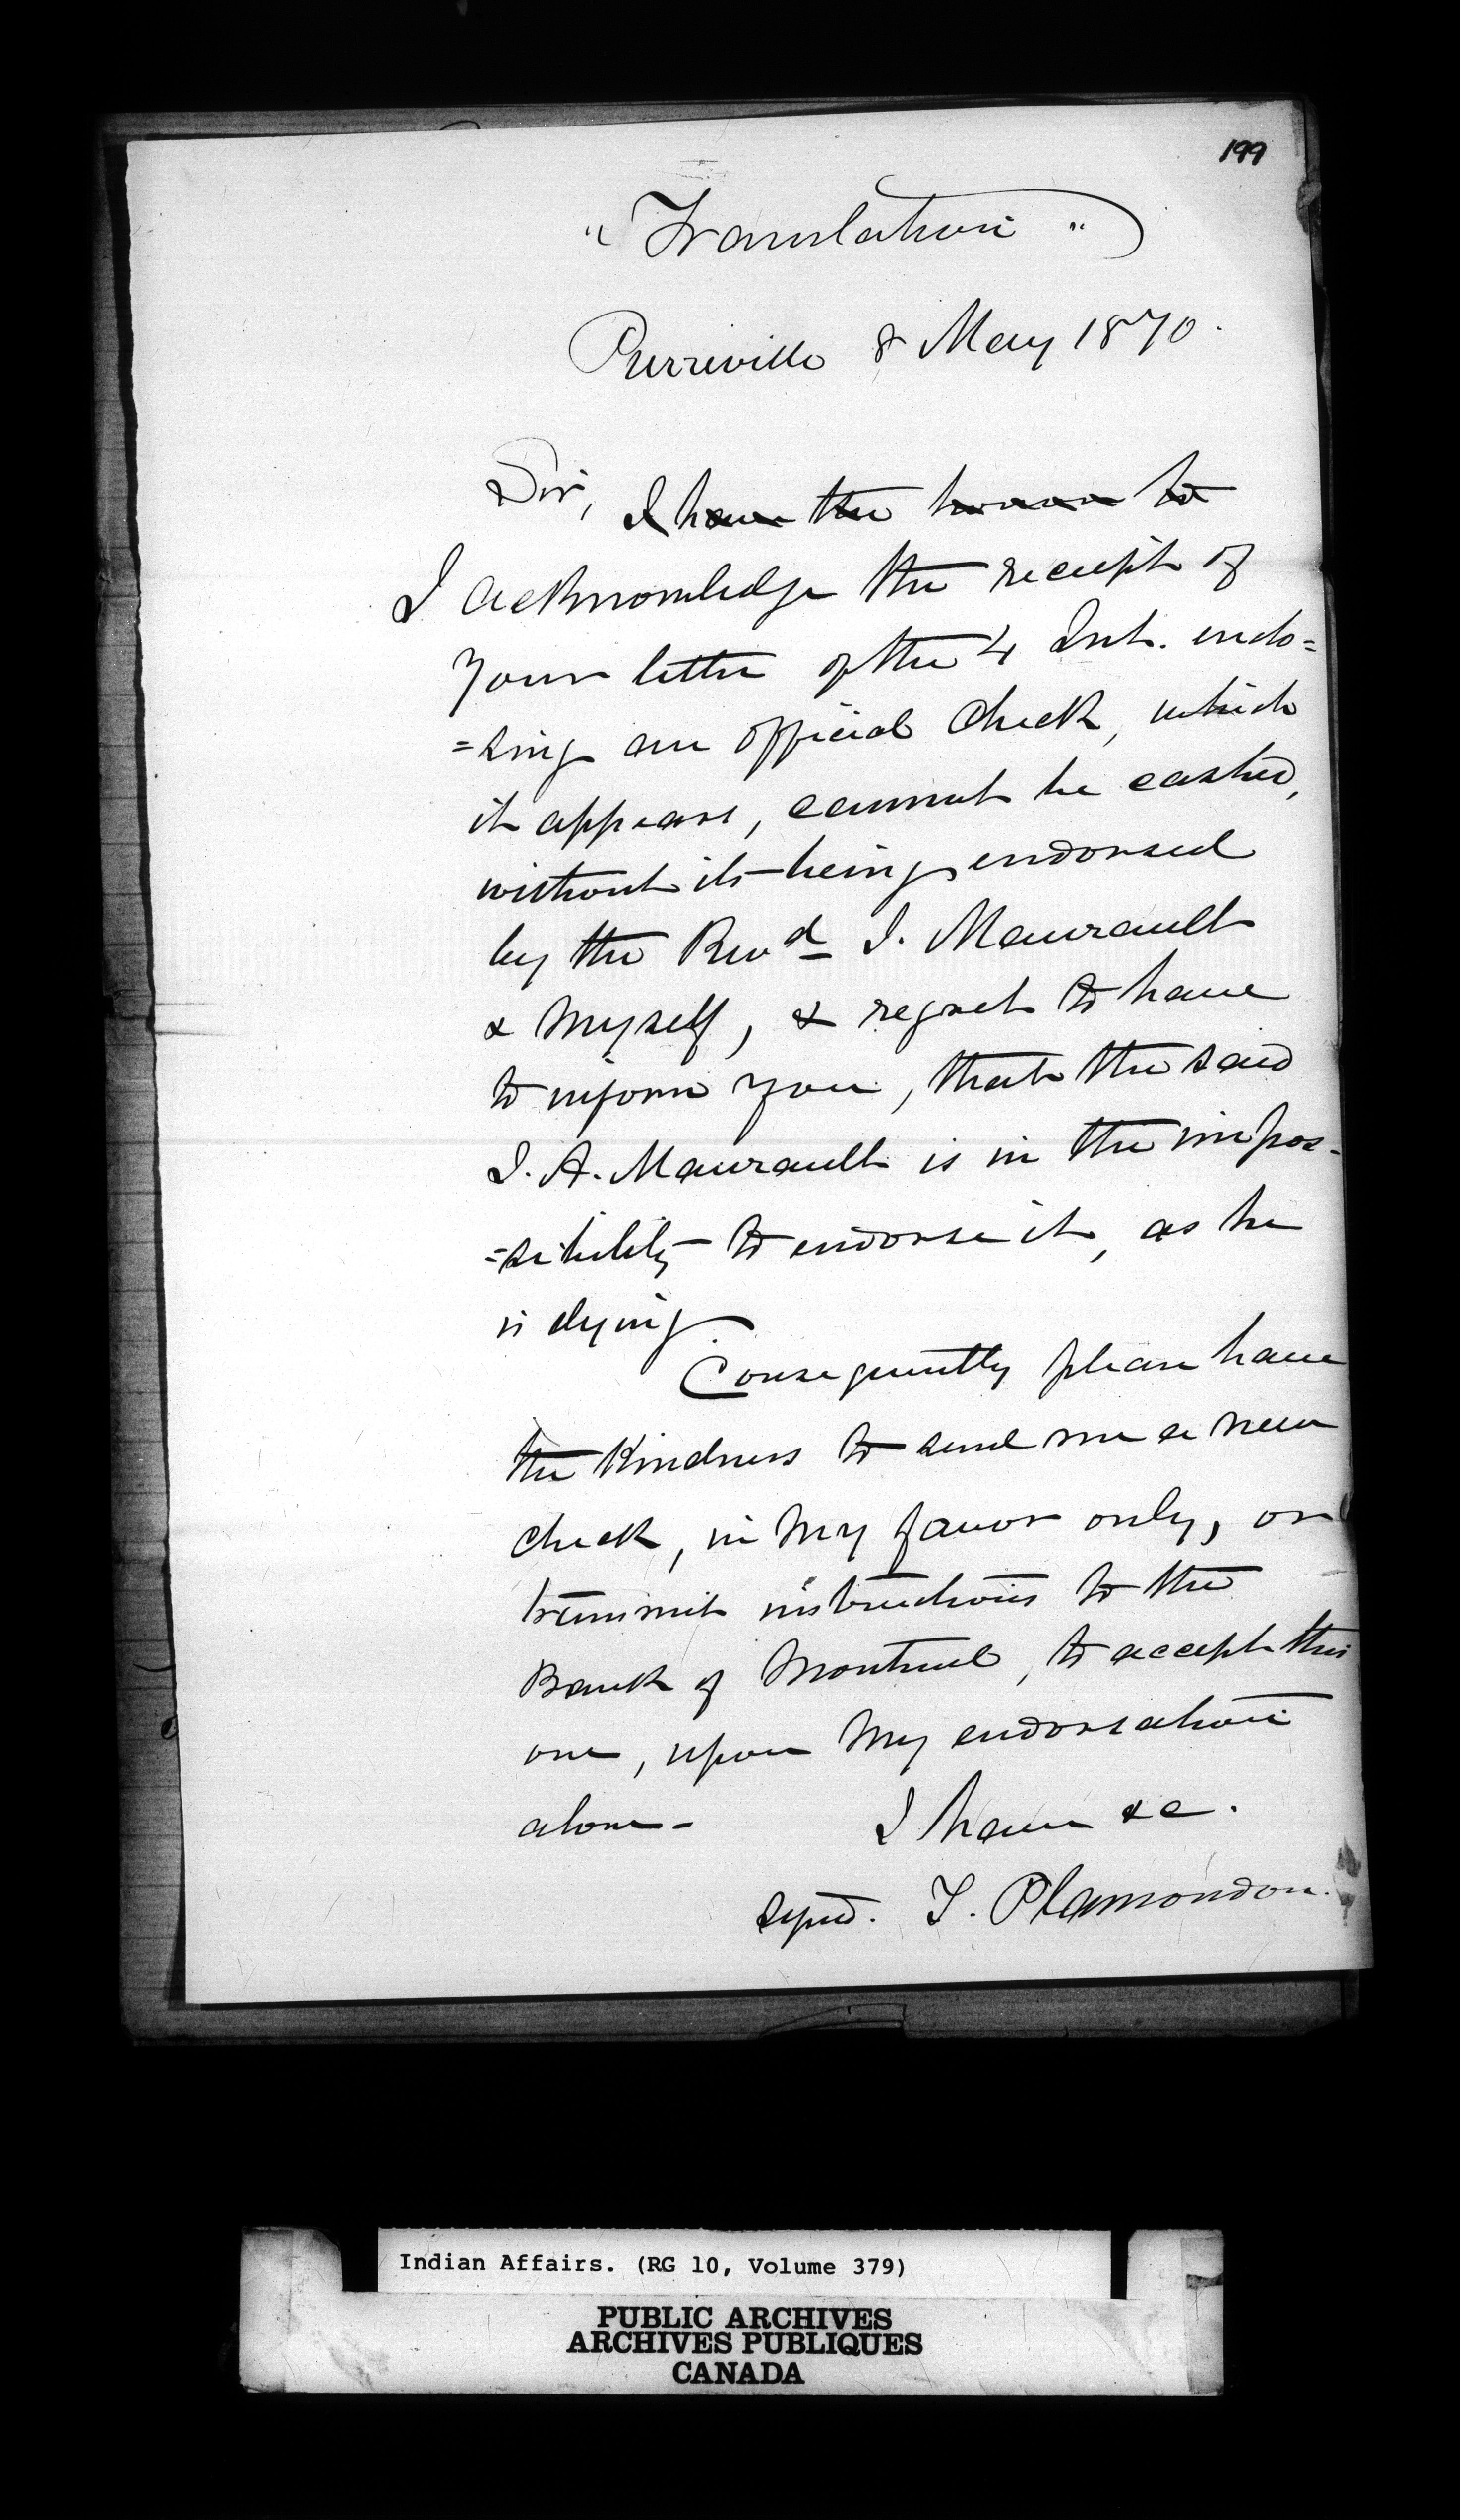 199
"Translation"
Pierreville 8 May 1870.
Sir, I have the honor to
I acknowledge the receipt of
your letter of the 4 Inst. enclo=
=sing an official Check, which
it appears, cannot be cashed,
without its being endorsed
by the Revd J. Maurault
& myself, & regret to have
to inform you, that the said
J. A. Maurault is in the impos=
=sibility to endorse it, as he
is dying
Consequently please have
the Kindness to send me a new
check, in my favor only, or
transmit instructions to the
Bank of Montreal, to accept this
one, upon my endorsation
alone - I have &c.
Signed. T. Plamondon.
Indian Affairs. (RG 10, Volume 379)
PUBLIC ARCHIVES
ARCHIVES PUBLIQUES
CANADA